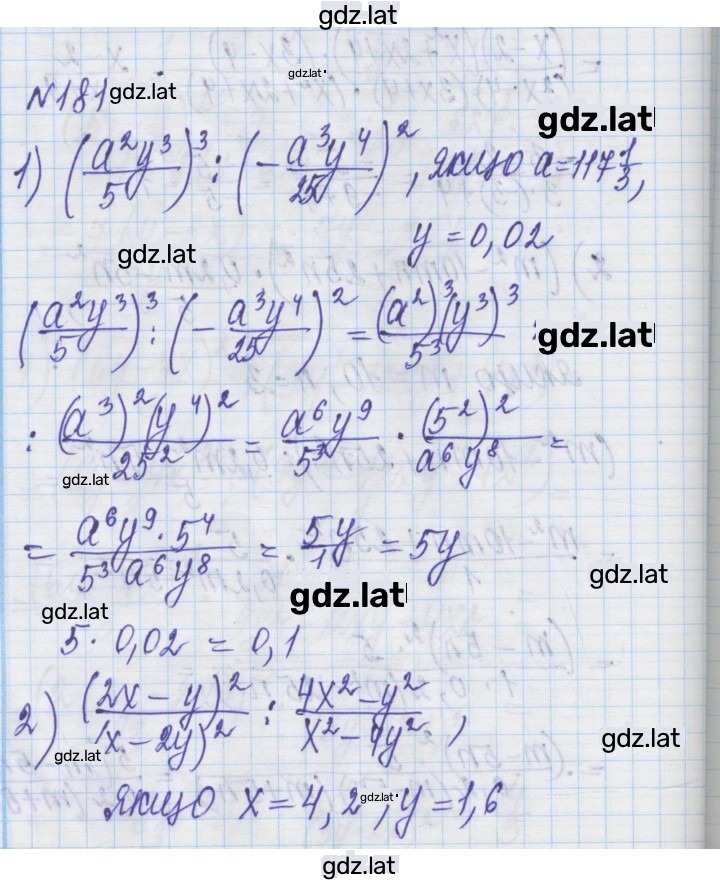 gdz.lat
gdz.lat
№181 gdz.lat
gdz.lat
1) (a²y³/5)³ : (-a³y⁴/25)², якщо a=117 1/3,
y = 0,02
gdz.lat
(a²y³/5)³ : (-a³y⁴/25)² = (a²)³(y³)³/5³ :
gdz.lat
: (a³)²(y⁴)²/25² = a⁶y⁹/5³ · (5²)²/a⁶y⁸ =
gdz.lat
= a⁶y⁹·5⁴/5³a⁶y⁸ = 5y/1 = 5y
gdz.lat
gdz.lat
gdz.lat
5 · 0,02 = 0,1
2) (2x – y)²/(x – 2y)² : 4x² – y²/x² – 4y² ,
gdz.lat
gdz.lat
якщо x = 4,2, y = 1,6
gdz.lat
gdz.lat